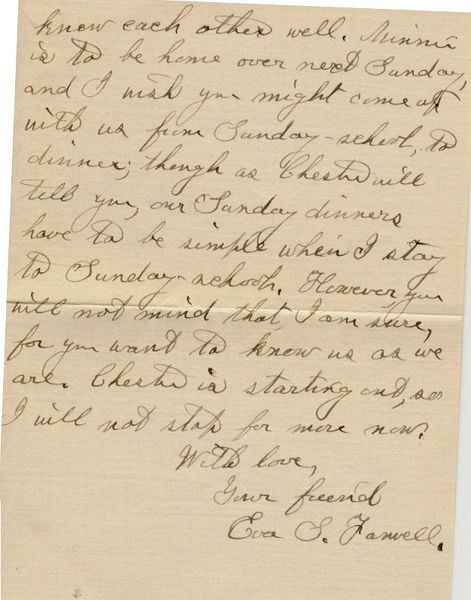 know each other well. Minnie
is to be home over next Sunday,
and I wish you might come up
with us from Sunday-school, to
dinner; though as Chester will
tell you, our Sunday dinners
have to be simple when I stay
to Sunday-school. However you
will not mind that, I am sure,
for you want to know us as we
are. Chester is starting out, so
I will not stop for more now.
With love,
Your friend
Eva S. Farwell.